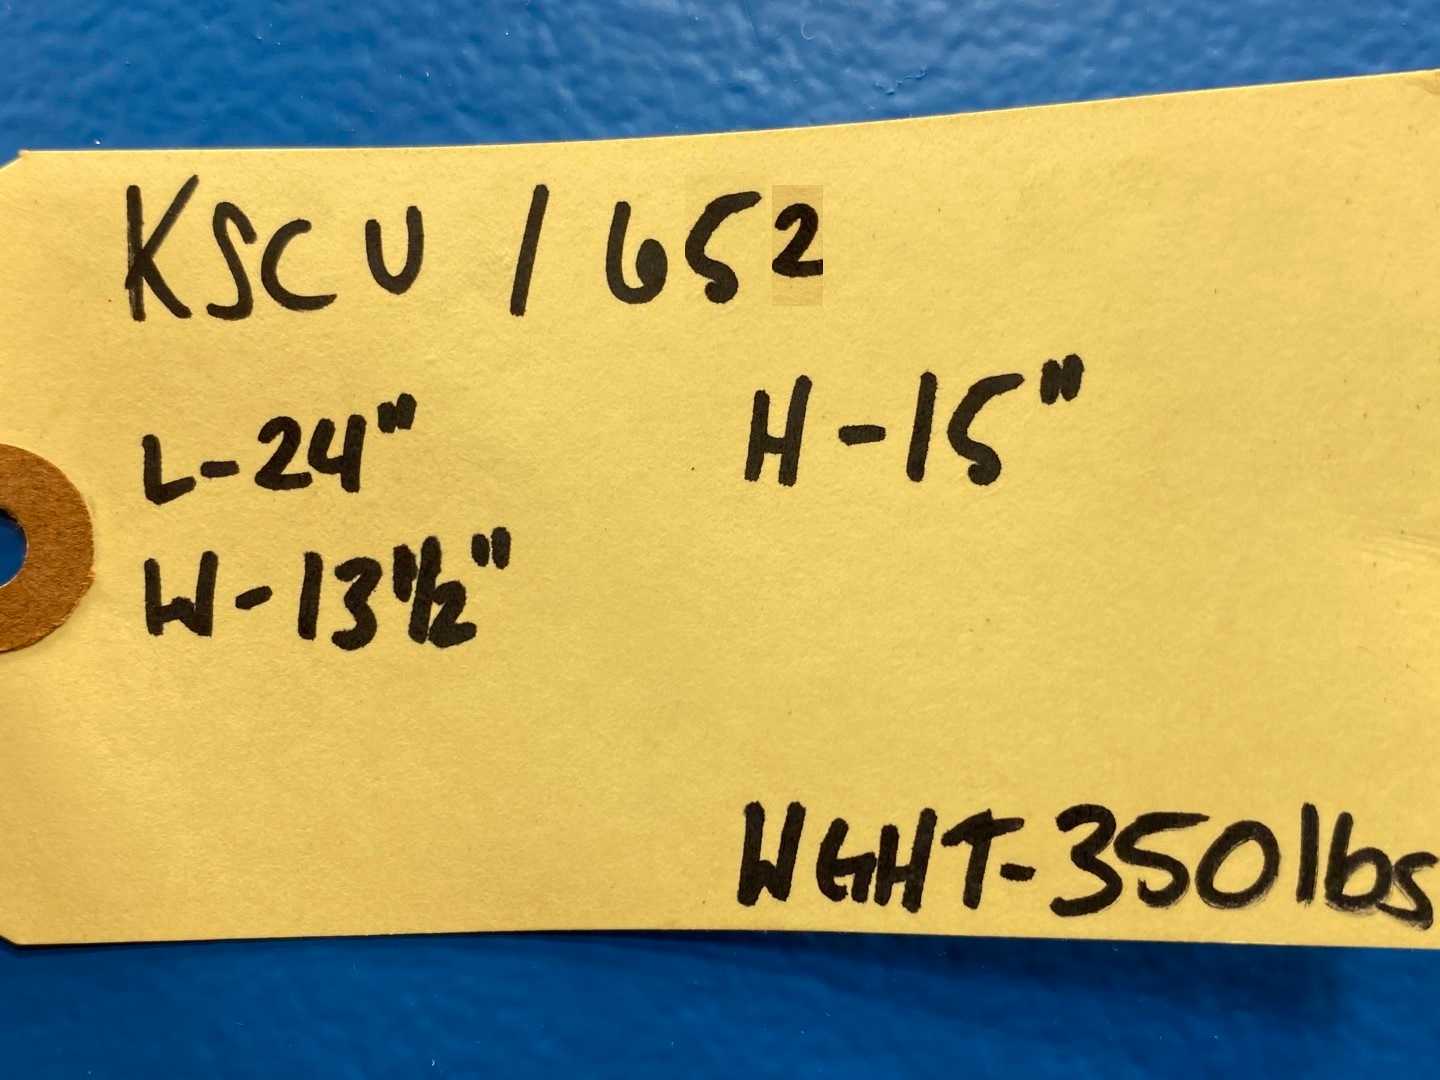 KSCU / 652
L-24" H-15"
W-13½"
WGHT-350lbs